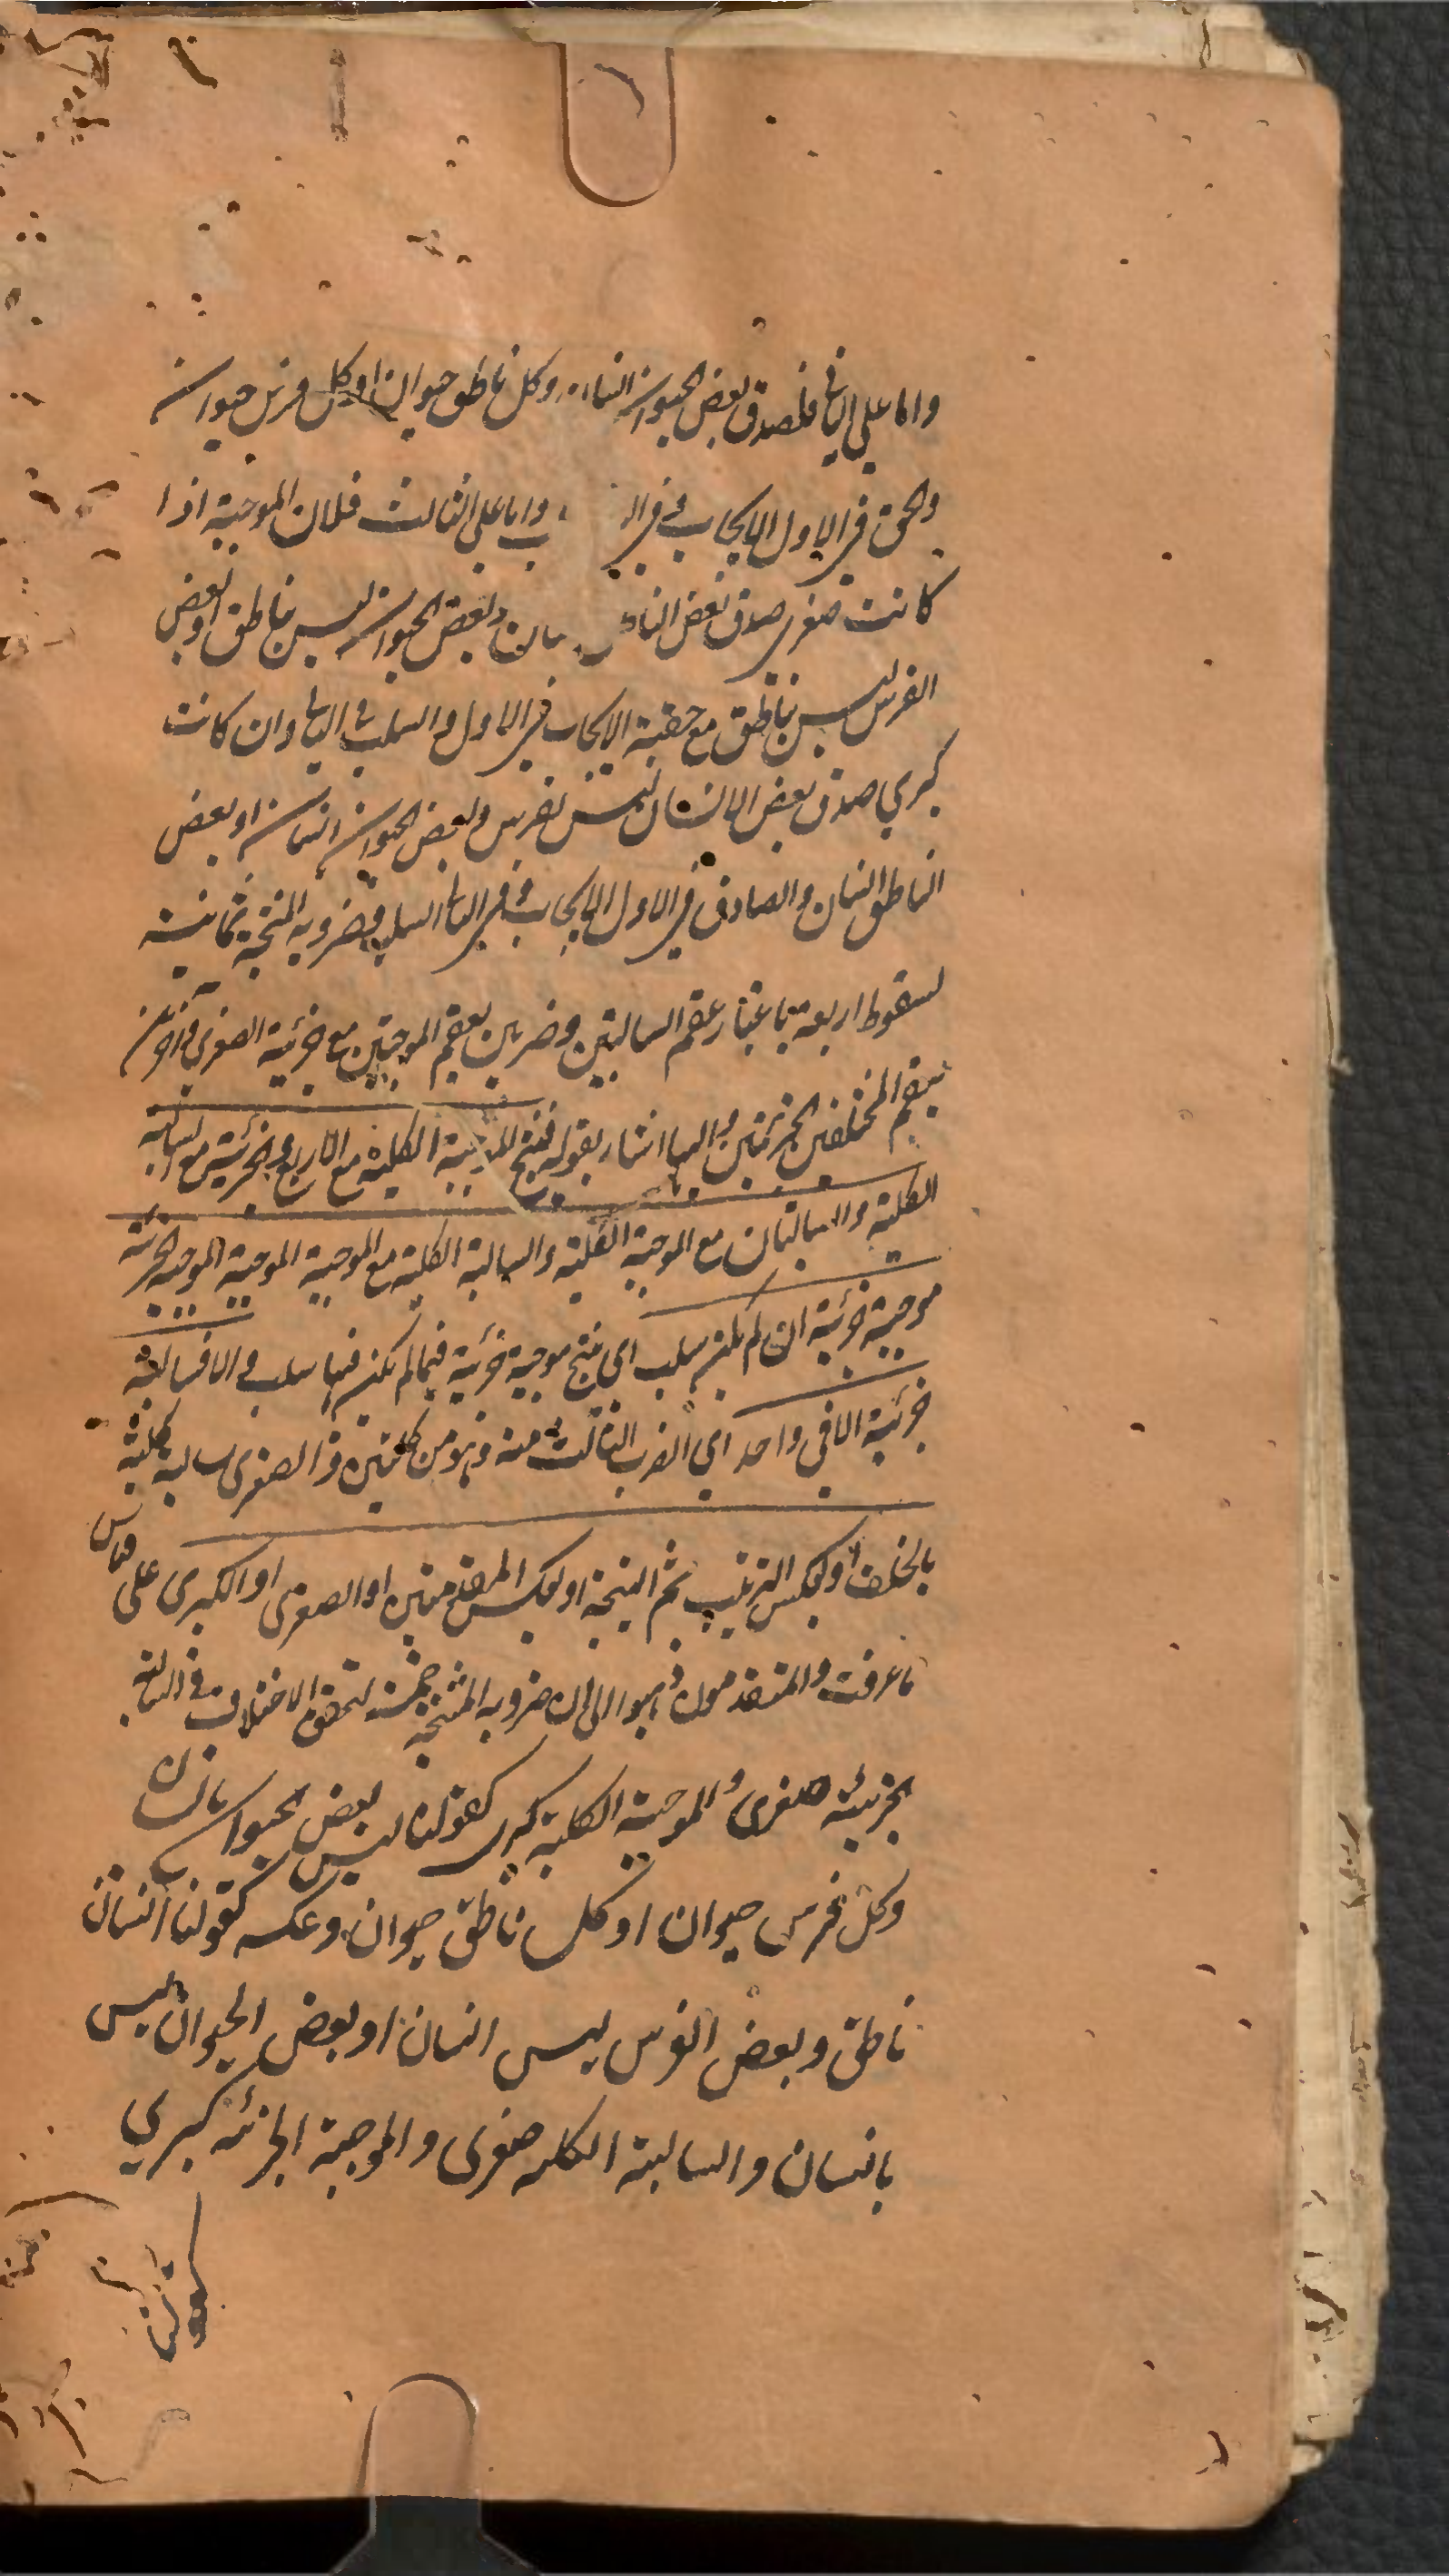 واما على الثانى فلصدق بعض الحيوان انسان وكل ناطق حيوان او كل فرس حيوان
والحق فى الاول الايجاب وفى واما على الثالث فلان الموجبة اذا
كانت صغرى صدق بعض الناطق وبعض الحيوان ليس بناطق او بعض
الفرس ليس بناطق مع حقية الايجاب فى الاول والسلب فى الثانى وان كانت
كبرى صدق بعض الانسان ليس بفرس وبعض الحيوان انسان او بعض
الناطق انسان والصادق فى الاول الايجاب وفى الثانى السلب وضروبه المنتجة ثمانية
لسقوط اربعة باعتبار عقم السالبتين وضربين بعقم الموجبتين مع جزئية الصغرى وآخرين
بعقم المختلفتين الجزئيتين واليها اشار بقوله فينتج الموجبة الكلية مع الاربع والجزئية مع السالبة
الكلية والسالبتان مع الموجبة الكلية والسالبة الكلية مع الموجبة الموجبة الموجبة الجزئية
موجبة جزئية ان لم يكن سلب اى ينتج موجبة جزئية فيما لم يكن فيها سلب والا فسالبة
جزئية الا فى واحد اى الضرب الثالث منه وهو من كليتين والصغرى سالبة كلية
بالخلف او بعكس الترتيب ثم النتيجة او بعكس المقدمتين او الصغرى او الكبرى على قياس
ما عرفت والمتقدمون ذهبوا الى ان ضروبه المنتجة خمسة لتحقق الاختلاف فى السالبة
الجزئية صغرى والموجبة الكلية كبرى كقولنا ليس بعض الحيوان بانسان
وكل فرس حيوان او كل ناطق حيوان وعكسه كقولنا انسان
ناطق وبعض الفرس ليس انسان او بعض الحيوان ليس
بانسان والسالبة الكلية صغرى والموجبة الجزئية كبرى
كقولنا